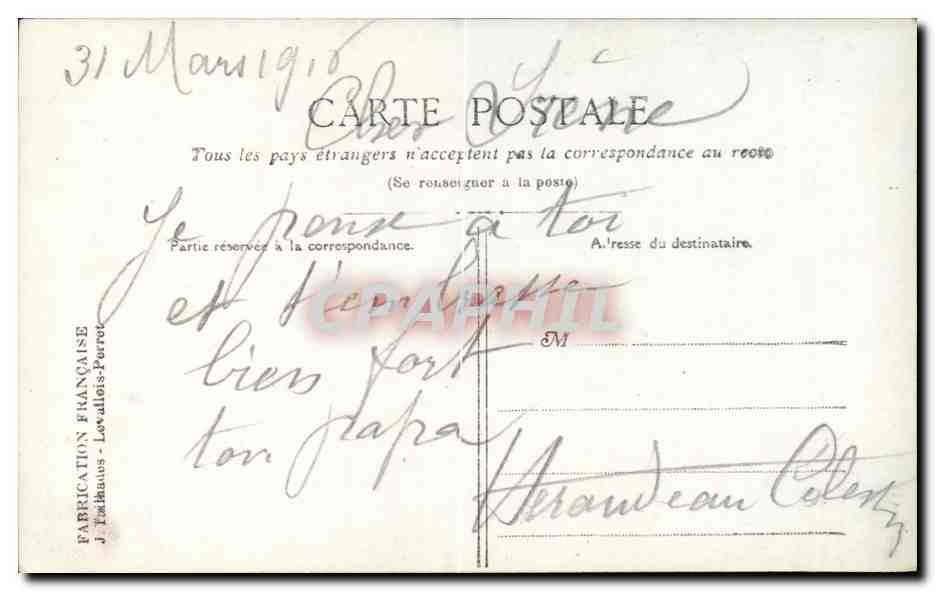 31 Mars 1916
Cher Irène
CARTE POSTALE
Tous les pays étrangers n'acceptent pas la correspondance au recto
(Se renseigner à la poste)
Je pense a toi
Partie réservée à la correspondance.
Adresse du destinataire.
et t'embrasse
CPAPHIL
bien fort
M
ton papa
Herandeau Celestin
FABRICATION FRANÇAISE
J. Tailhades - Levallois-Perret